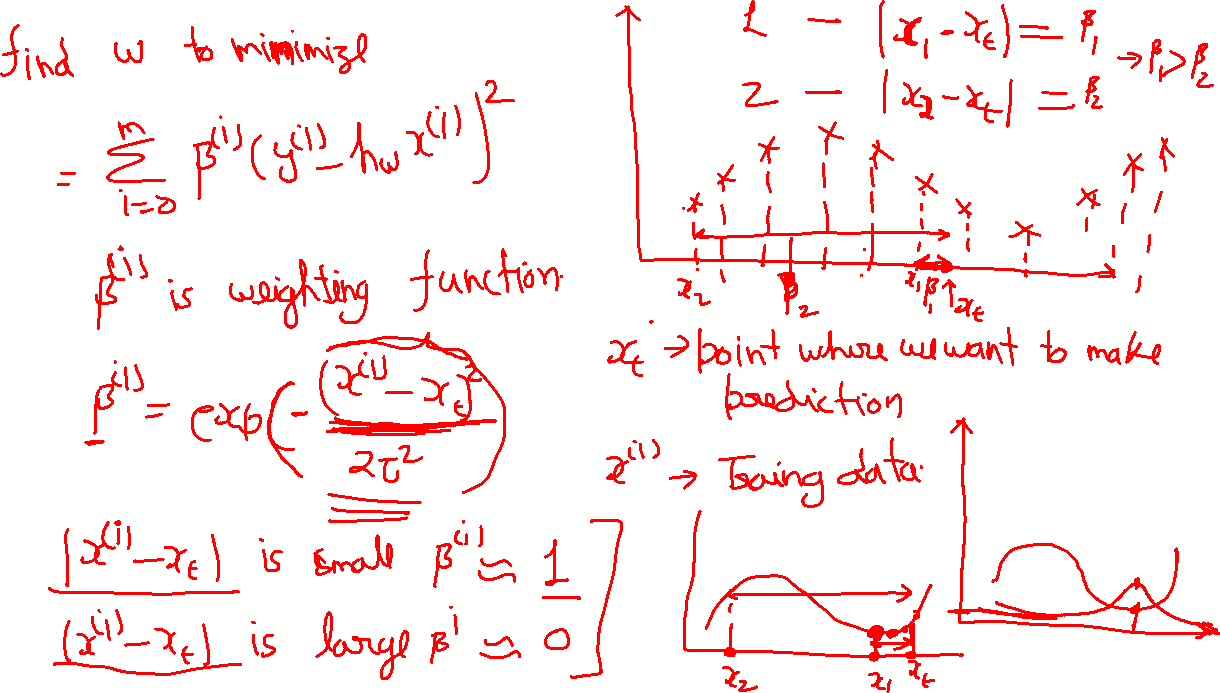 find ω to minimize
= Σ_{i=0}^{m} β^(i) (y^(i) - hω x^(i))²
β^(i) is weighting function.
β^(i) = exp(- (x^(i) - x_t)² / 2τ²)
|x^(i) - x_t| is small β^(i) ≃ 1
(x^(i) - x_t) is large β^i ≃ 0
1 - |x_1 - x_t) = β_1 → β_1 > β_2
2 - |x_2 - x_t| = β_2
x_2 β_2 x_1 β_1 x_t
x_t → point where we want to make
prediction
x^(i) → Traing data.
x_2 x_1 x_t